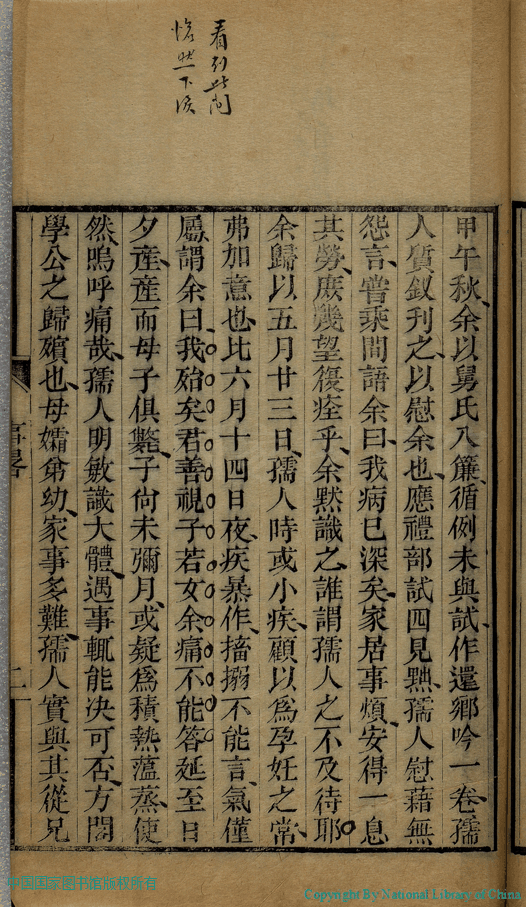 看到此间
惨然下泪
甲午秋余以舅氏入簾循例未與試作還鄉吟一卷孺
人質釵刊之以慰余也應禮部試四見黜孺人慰藉無
怨言嘗乘間語余曰我病已深矣家居事煩安得一息
其勞庶幾望復痊乎余默識之誰謂孺人之不及待耶
余歸以五月廿三日孺人時或小疾顧以爲孕妊之常
弗加意也比六月十四日夜疾暴作搐搦不能言氣僅
屬謂余曰我殆矣君善視子若女余痛不能答延至日
夕產產而母子俱斃子尙未彌月或疑爲積熱蘊蒸使
然嗚呼痛哉孺人明敏識大體遇事輒能決可否方閣
學公之歸殯也母孀弟幼家事多難孺人實與其從兄
事畧
二
中国国家图书馆版权所有
Copyright By National Library of China